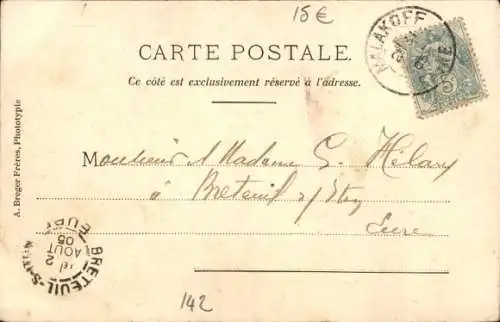 15€
CARTE POSTALE.
Ce côté est exclusivement réservé à l'adresse.
MALAKOFF
5
Monsieur et Madame G. Hélary
à Breteuil s/ Iton
Eure
A. Breger Frères, Phototypie
BRETEUIL-S-
EURE
2
AOUT
05
142